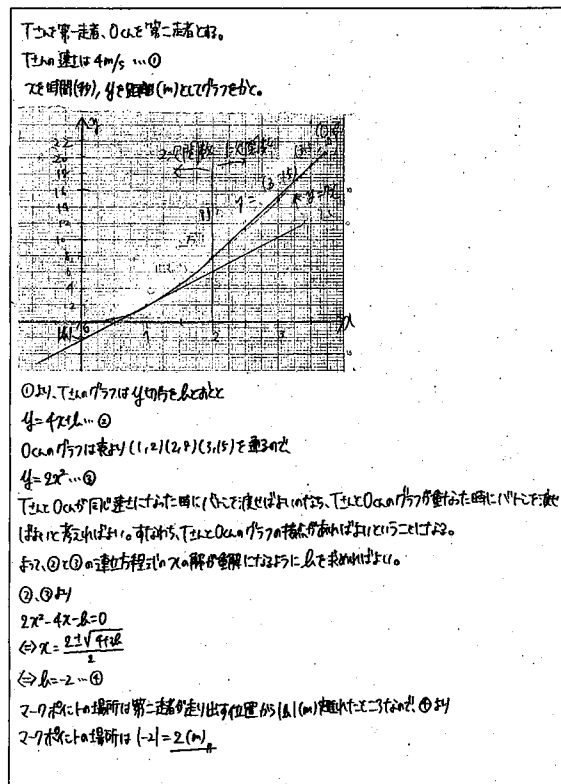 Tさんを第一走者、Oくんを第二走者とする。
Tさんの速さは4m/s …①
xを時間(秒), yを距離(m)としてグラフをかく。
y
22
20
18
16
14
12
10
8
6
4
2
2次関数 1次関数
(3, 15)
|b|
1 2 3 x
①より、Tさんのグラフはy切片をbとおくと
y=4x+b…②
Oくんのグラフは表より(1,2)(2,8)(3,15)を通るので
y=2x²…③
TさんとOくんが同じ速さになった時にバトンを渡せばよいのなら、TさんとOくんのグラフが重なった時にバトンを渡せ
ばよいと考えればよい。すなわち、TさんとOくんのグラフの接点があればよいということになる。
よって、②と③の連立方程式のxの解が重解になるようにbを求めればよい。
②、③より
2x²-4x-b=0
⇔x=2±√4+2b/2
⇔b=-2…④
マークポイントの場所は第二走者が走り出す位置から|b|(m)離れたところなので、④より
マークポイントの場所は|-2|=2(m)